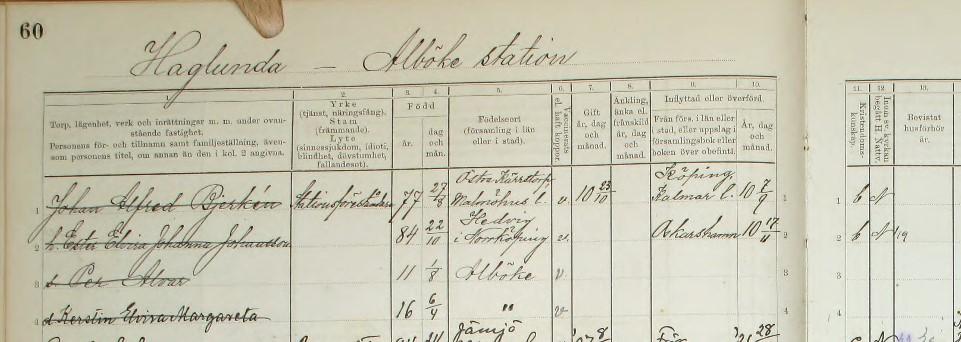 60
Haglunda — Alböke station
1.
Torp, lägenhet, verk och inrättningar m. m. under ovan-
stående fastighet.
Personens för- och tillnamn samt familjeställning, även-
som personens titel, om annan än den i kol. 2 angivna.
2.
Yrke
(tjänst, näringsfång).
Stam
(främmande).
Lyte
(sinnessjukdom, idioti,
blindhet, dövstumhet,
fallandesot).
3. 4.
Född
år.
dag
och
mån.
5.
Födelseort
(församling i län
eller i stad).
6.
Vaccinerats
el. haft koppor.
7.
Gift
år, dag
och
månad.
8.
Änkling,
änka el.
frånskild
år, dag
och
månad.
9. 10.
Inflyttad eller överförd.
Från förs. i län eller
i stad, eller uppslag i
församlingsbok eller
boken över obefintl.
År, dag
och
månad.
11.
Kristendoms-
kunskap.
12.
Inom sv. kyrkan
begått H. Nattv.
13.
Bevistat
husförhör
år.
1 Johan Alfred Bjerkén Stationsföreståndare 77 27/8 Östra Kärrstorp, Malmöhus l. v. 10 23/10 Köping, Kalmar l. 10 7/9 1 1 b N
2 h. Ester Elvira Johanna Johansson 84 22/10 Hedvig i Norrköping v. Oskarshamn 10 17/11 2 2 b N 1/19
3 s Per Alvar 11 1/8 Alböke v. 3 3
4 d Kerstin Elvira Margareta 16 6/4 " v. 4 4
Jämjö
28